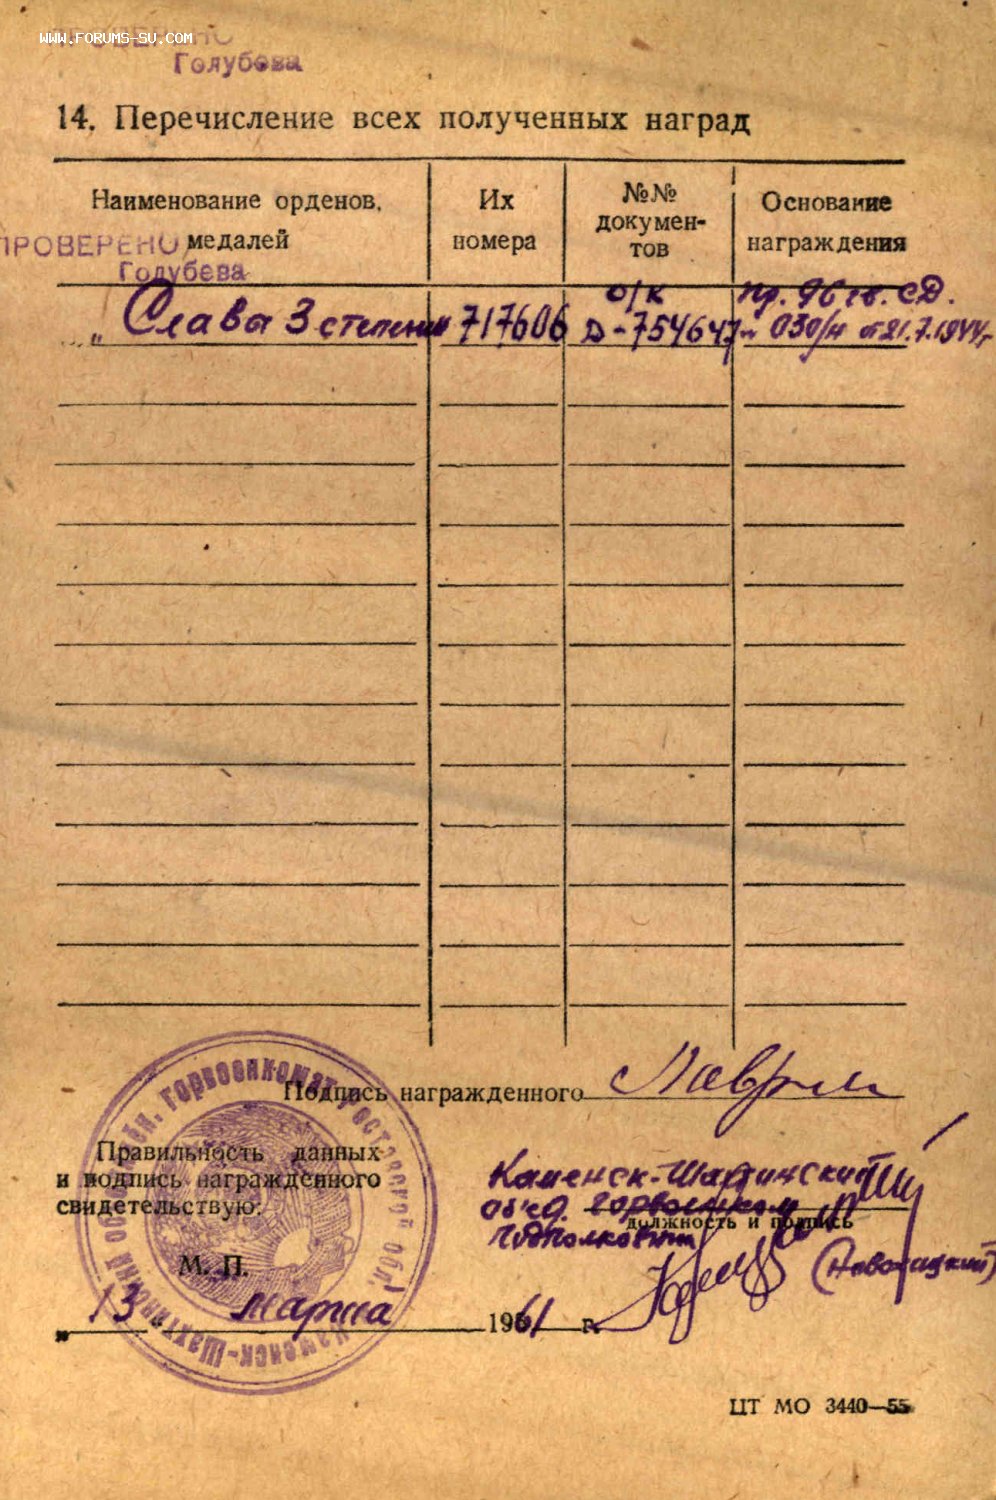 WWW.FORUMS-SU.COM
ПРОВЕРЕНО
Голубева
14. Перечисление всех полученных наград
Наименование орденов, медалей
Их номера
№№ документов
Основание награждения
ПРОВЕРЕНО
Голубева
„ Слава 3 степени 717606 о/к Д-754647 Пр. 96 гв. СД. № 030/н от 21.7.1944г
Подпись награжденного
Правильность данных
и подпись награжденного
свидетельствую:
Каменск-Шахтинский
объед. горвоенком
должность и подпись
Подполковник
М. П.
„ 13 " марта 1961 г.
Каменск-Шахтинский объединен. горвоенкомат Ростовской обл.
ЦТ МО 3440—55